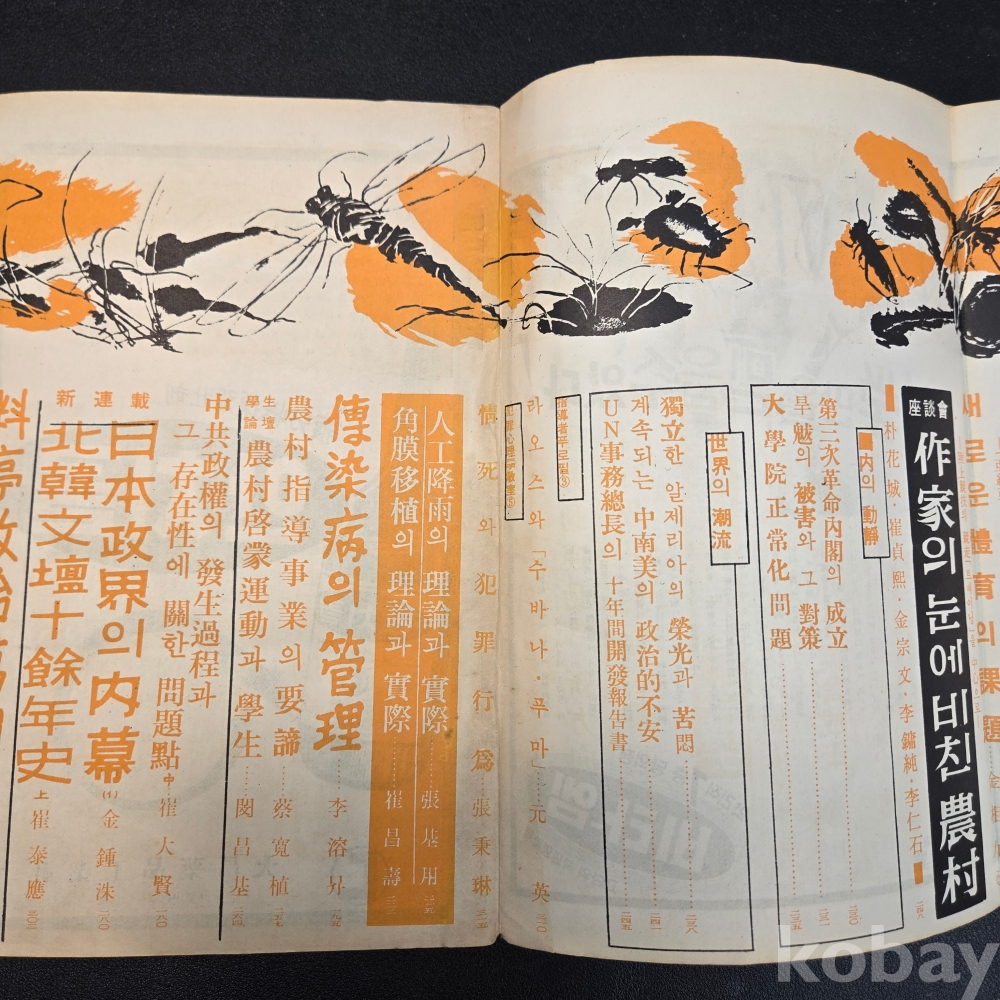 새로운 體育의 課題
座談會
作家의 눈에 비친 農村
朴花城·崔貞熙·金宗文·李鏞純·李仁石
國內의 動靜
第二次革命內閣의 成立
旱魃의 被害와 그 對策
大學院正常化問題
世界의 潮流
獨立한 알제리아의 榮光과 苦悶
계속되는 中南美의 政治的不安
UN事務總長의 十年間開發報告書
指導者푸로필③
라오즈와「주바나·푸마」 元英
情死와 犯罪行爲 張秉琳
人工降雨의 理論과 實際 張基用
角膜移植의 理論과 實際 崔昌壽
傳染病의 管理 李溶昇
農村指導事業의 要諦 蔡寬植
學生論壇 農村啓蒙運動과 學生 閔昌基
中共政權의 發生過程과
그 存在性에 關한 問題點 中 崔大賢
新連載
日本政界의 內幕 (1) 金鍾洙
北韓文壇十餘年史 上 崔泰應
kobay